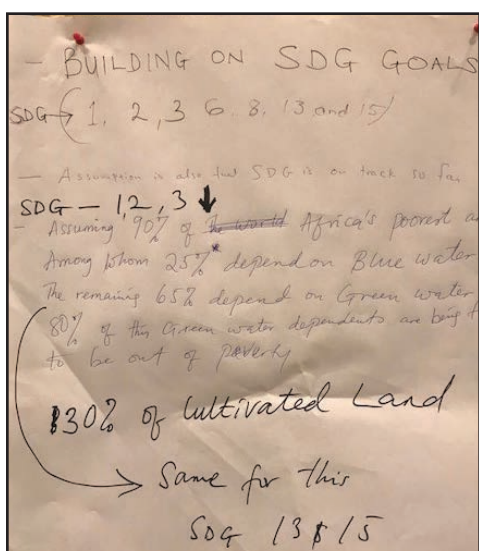 - BUILDING ON SDG GOALS
SDG → (1, 2, 3 6. 8, 13 and 15)
- Assumption is also that SDG is on track so far
SDG - 1,2,3 ↓
- Assuming 90% of the world Africa's poorest a
Among whom 25%* depend on Blue water
The remaining 65% depend on Green water
80% of this Green water dependents are being
to be out of poverty
30% of Cultivated Land
Same for this
SDG 13 & 15